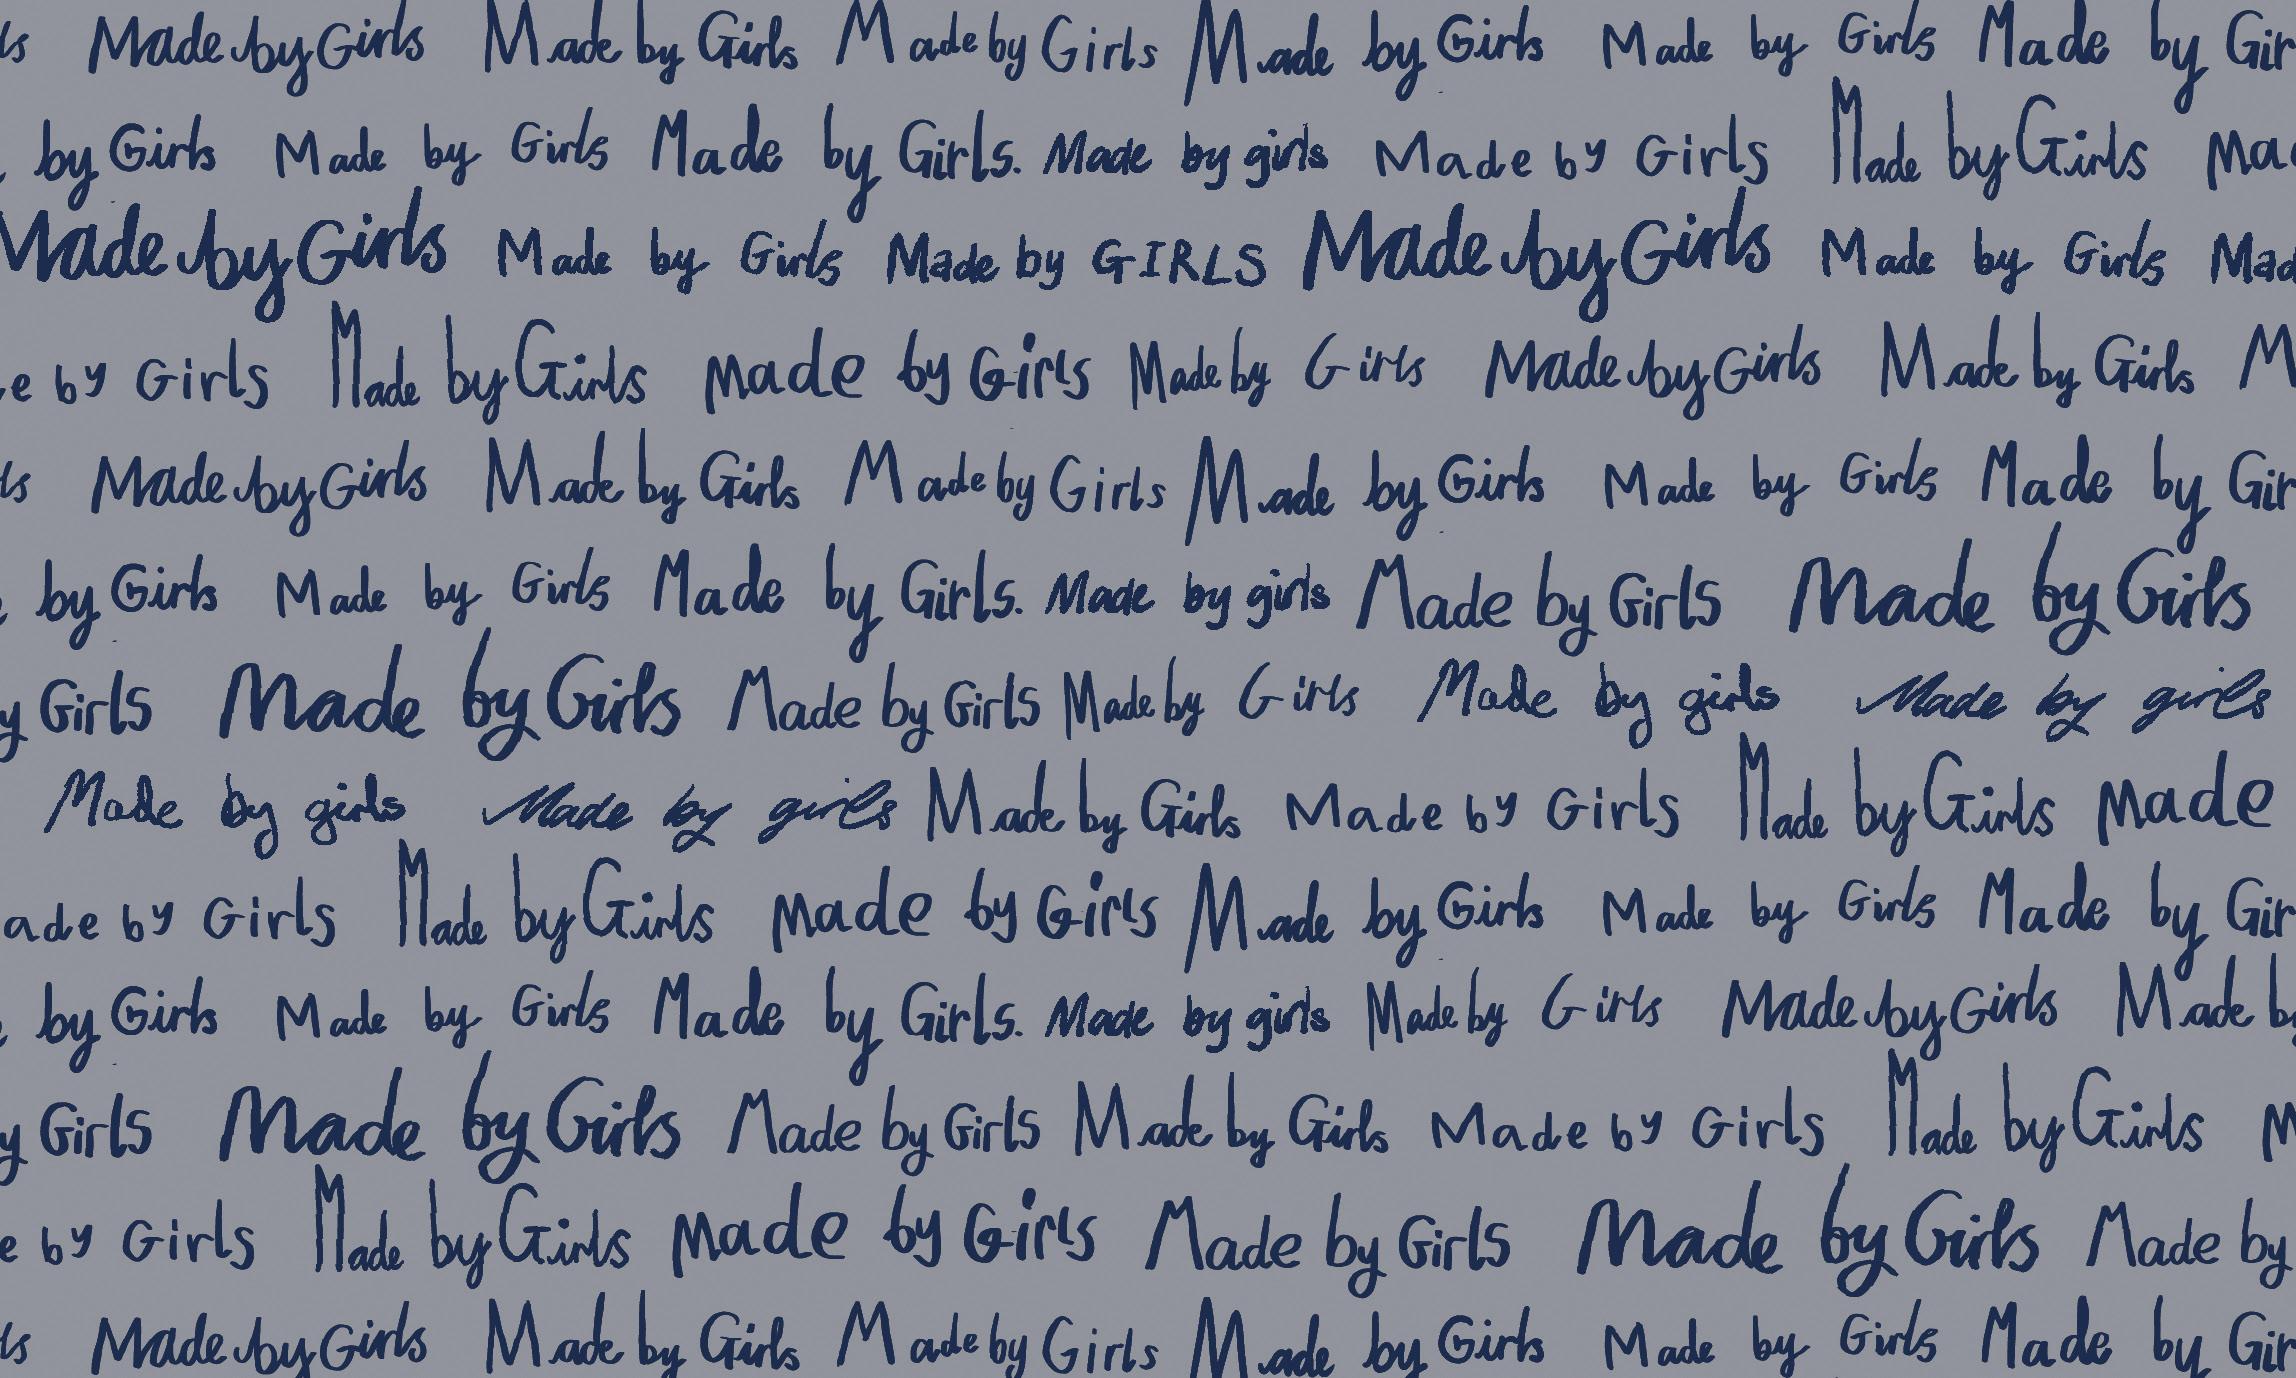 ls Made by Girls Made by Girls Made by Girls Made by Girls Made by Girls Made by Gir
by Girls Made by Girls Made by Girls. Made by girls Made by Girls Made by Girls Ma
Made by Girls Made by Girls Made by GIRLS Made by Girls Made by Girls Mad
e by Girls Made by Girls Made by Girls Made by Girls Made by Girls Made by Girls M
ls Made by Girls Made by Girls Made by Girls Made by Girls Made by Girls Made by Gir
by Girls Made by Girls Made by Girls. Made by girls Made by Girls Made by Girls
y Girls Made by Girls Made by Girls Made by Girls Made by girls Made by girls
Made by girls Made by girls Made by Girls Made by Girls Made by Girls Made
ade by Girls Made by Girls Made by Girls Made by Girls Made by Girls Made by Gir
by Girls Made by Girls Made by Girls. Made by girls Made by Girls Made by Girls Made b
y Girls Made by Girls Made by Girls Made by Girls Made by Girls Made by Girls M
e by Girls Made by Girls Made by Girls Made by Girls Made by Girls Made by
ls Made by Girls Made by Girls Made by Girls Made by Girls Made by Girls Made by Gir